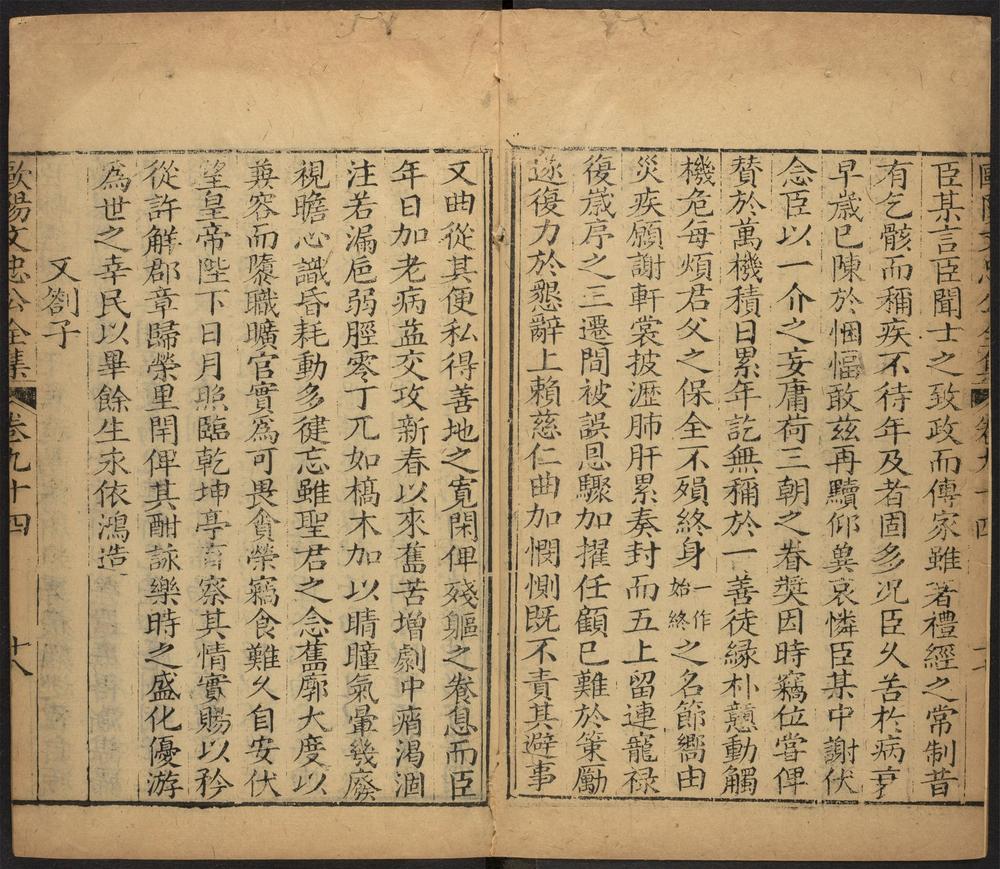 臣某言臣聞士之致政而傳家雖著禮經之常制昔
有乞骸而稱疾不待年及者固多况臣久苦於病䘮
早歲已陳於悃愊敢兹再黷仰兾哀憐臣某中謝伏
念臣以一介之妄庸荷三朝之眷奬因時竊位嘗俾
賛於萬機積日累年訖無稱於一善徒縁朴戇動觸
機危每煩君父之保全不殞終身一作始終之名節嚮由
災疾願謝軒裳披瀝肺肝累奏封而五上留連寵禄
復歲序之三遷間被誤恩驟加擢任顧已難於䇿勵
遂復力於懇辭上賴慈仁曲加憫惻既不責其避事
又曲從其便私得善地之寛閑俾殘軀之養息而臣
年日加老病益交攻新春以來舊苦增劇中痟渴涸
注若漏巵弱脛零丁兀如槁木加以睛瞳氣暈幾廢
視瞻心識昏耗動多徤忘雖聖君之念舊廓大度以
兾容而隳職曠官實為可畏貪榮竊食難久自安伏
望皇帝陛下日月照臨乾坤亭育察其情實賜以矜
從許解郡章歸榮里閈俾其酣詠樂時之盛化優游
為世之幸民以畢餘生永依鴻造
又劄子
歐陽文忠公全集 卷九十四 十八